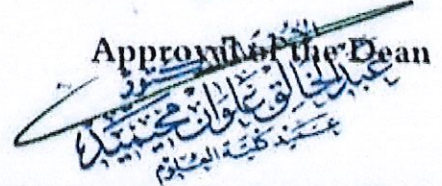 Approval of the Dean
الدكتور
عبد الخالق علوان محيميد
عميد كلية العلوم